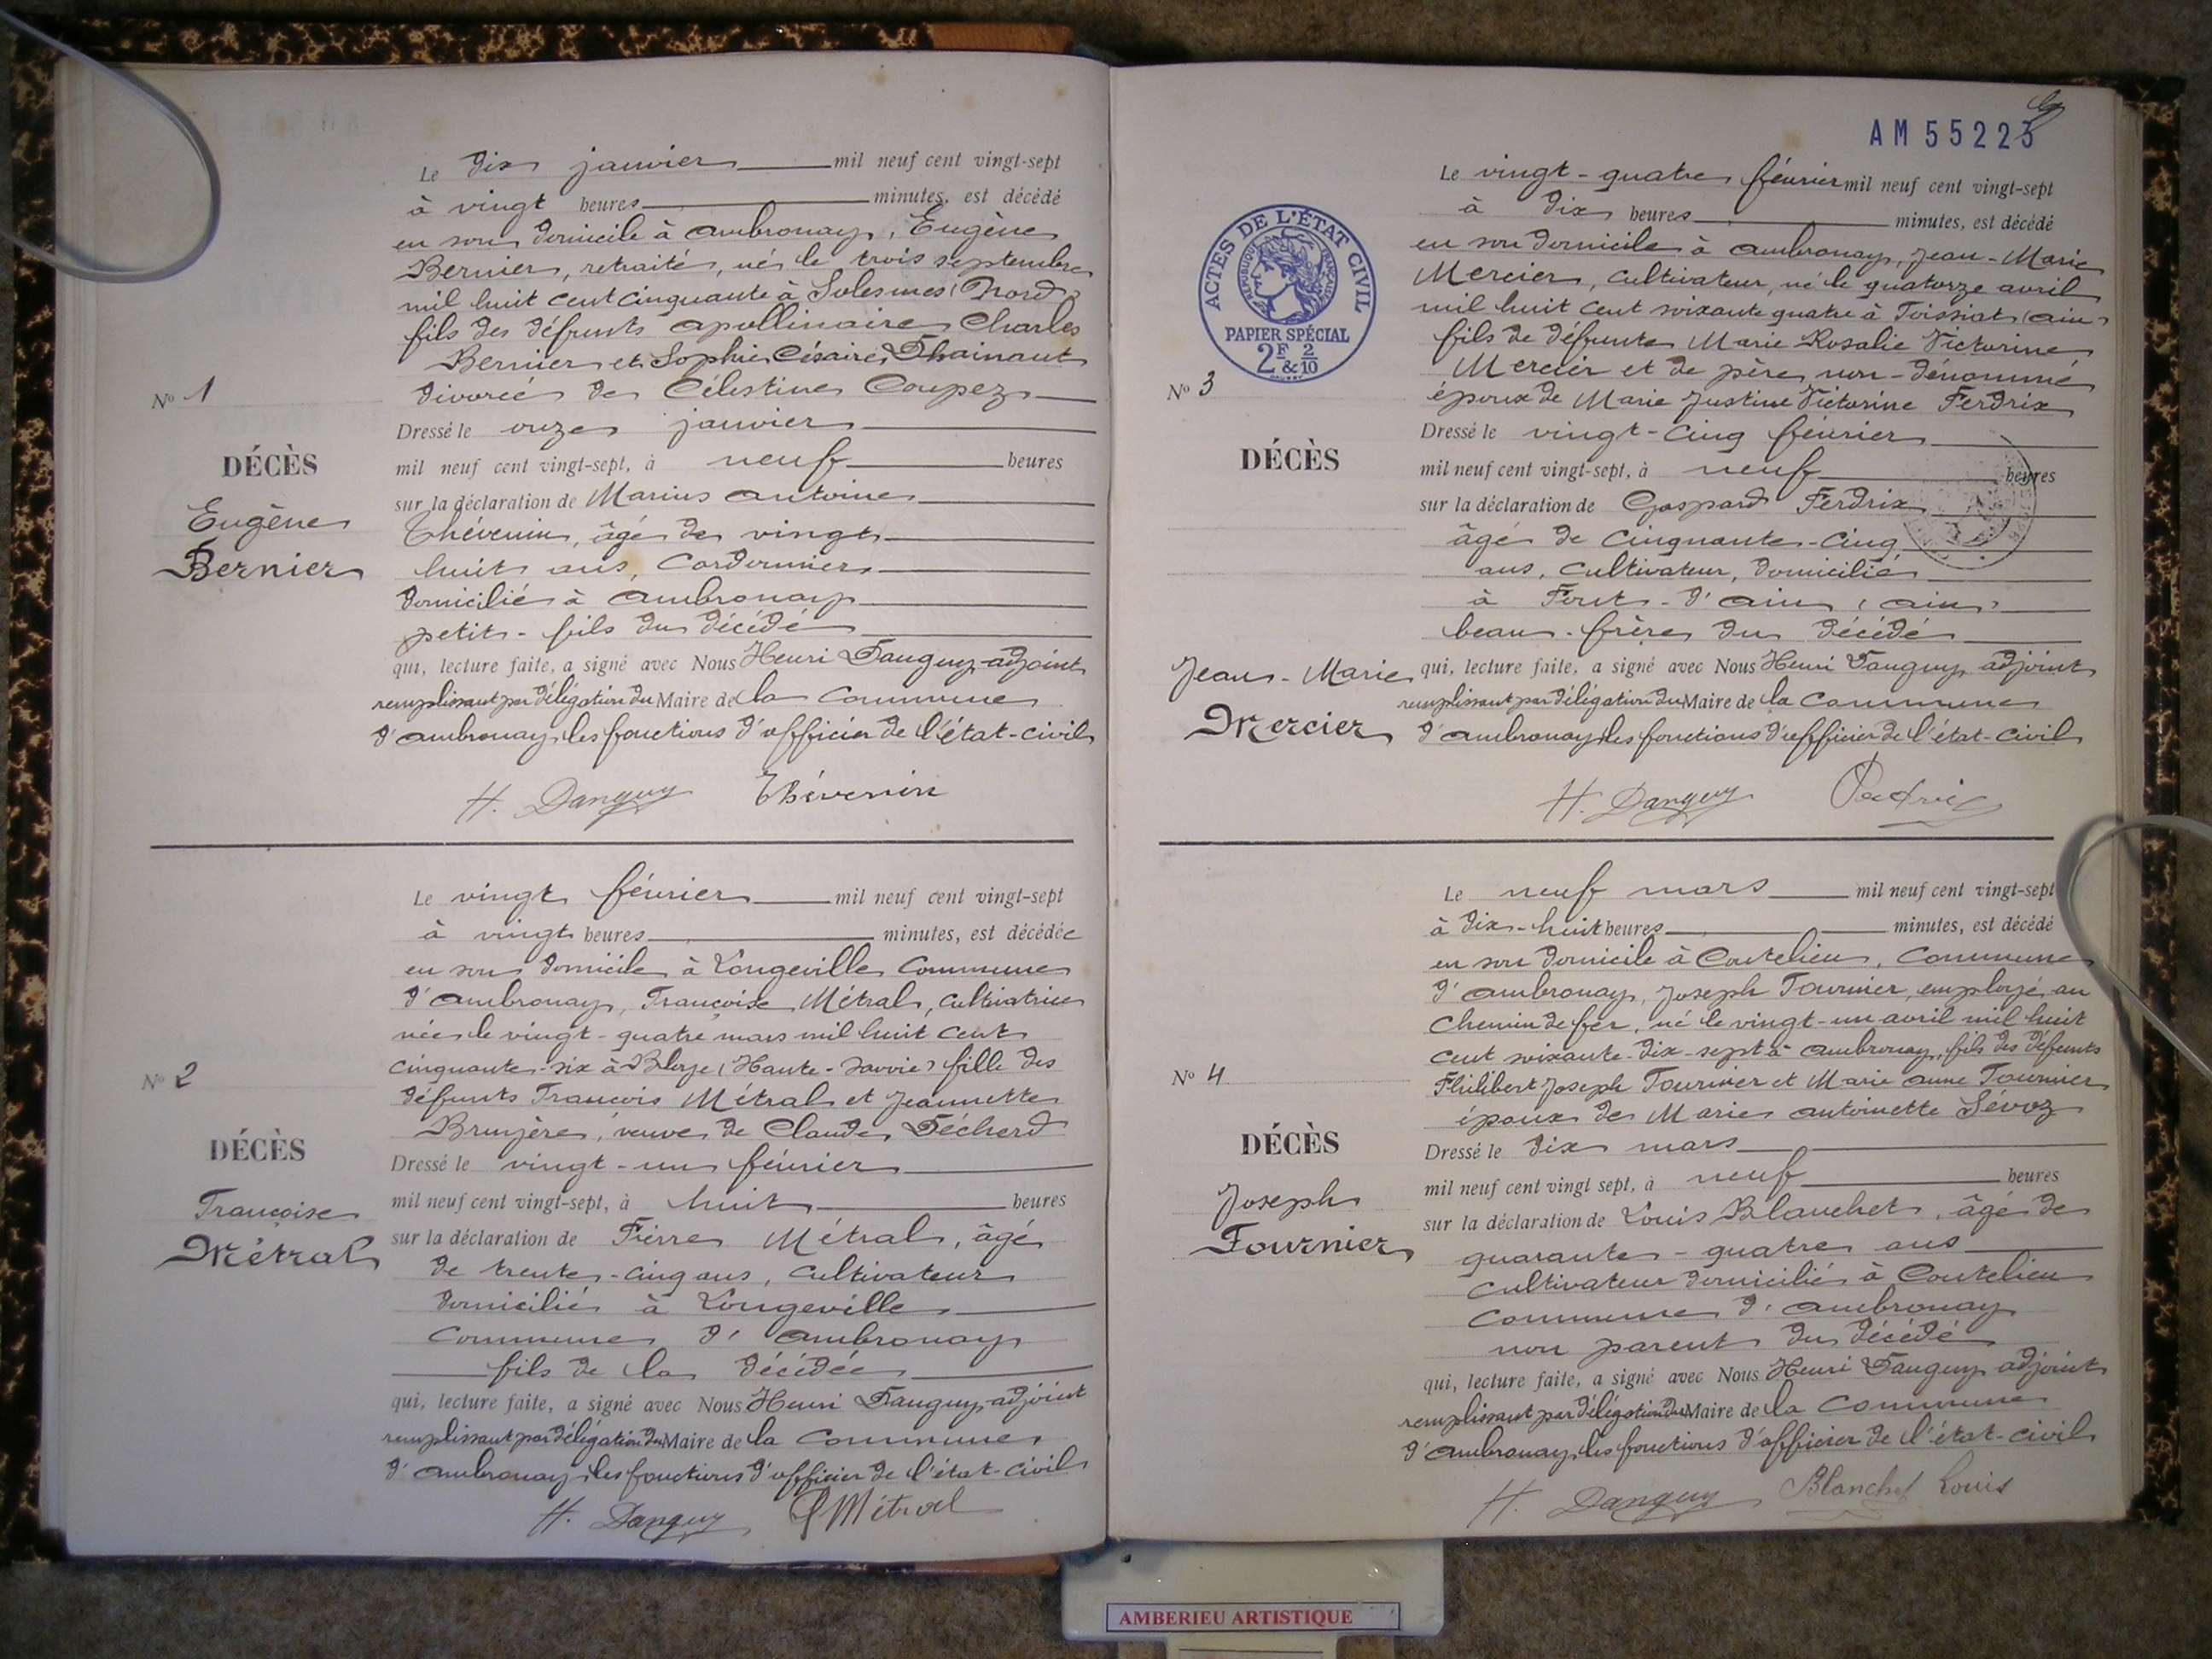 Le dix janvier mil neuf cent vingt-sept
à vingt heures minutes, est décédé
en son domicile à Ambronay, Eugène
Bernier, retraité, né le trois septembre
mil huit cent cinquante à Solesmes (Nord)
fils des défunts Apollinaire Charles
Bernier et Sophie Césaire Dhainaut
divorcé de Célestine Coupez
Dressé le onze janvier
mil neuf cent vingt-sept, à neuf heures
sur la déclaration de Marius Antoine
Thévenin, âgé de vingt
huit ans, cordonnier
domicilié à Ambronay
petit-fils du décédé
qui, lecture faite, a signé avec Nous Henri Danguy adjoint
remplissant par délégation du Maire de la Commune
d'Ambronay les fonctions d'officier de l'état-civil
H. Danguy Thévenin
No 1
DÉCÈS
Eugène
Bernier
Le vingt février mil neuf cent vingt-sept
à vingt heures minutes, est décédée
en son domicile à Longeville Commune
d'Ambronay, Françoise Métral, cultivatrice
née le vingt-quatre mars mil huit cent
cinquante-six à (Haute-Savoie) fille des
défunts François Métral et Jeannette
Bruyère, veuve de Claude Pécherd
Dressé le vingt-un février
mil neuf cent vingt-sept, à huit heures
sur la déclaration de Pierre Métral, âgé
de trente-cinq ans, cultivateur
domicilié à Longeville
Commune d'Ambronay
fils de la décédée
qui, lecture faite, a signé avec Nous Henri Danguy, adjoint
remplissant par délégation du Maire de la Commune
d'Ambronay les fonctions d'officier de l'état-civil
H. Danguy P Métral
No 2
DÉCÈS
Françoise
Métral
AM 55223
ACTES DE L'ÉTAT CIVIL
RÉPUBLIQUE FRANÇAISE
PAPIER SPÉCIAL
2F & 2/10
Le vingt-quatre février mil neuf cent vingt-sept
à dix heures minutes, est décédé
en son domicile à Ambronay, Jean-Marie
Mercier, cultivateur, né le quatorze avril
mil huit cent soixante quatre à Toissiat (Ain)
fils de défunte Marie Rosalie Victorine
Mercier et de père non-dénommé
époux de Marie Justine Victorine Perdrix
Dressé le vingt-cinq février
mil neuf cent vingt-sept, à neuf heures
sur la déclaration de Gaspard Perdrix
âgé de cinquante-cinq
ans, cultivateur, domicilié
à Pont-d'Ain (Ain)
beau-frère du décédé
qui, lecture faite, a signé avec Nous Henri Danguy adjoint
remplissant par délégation du Maire de la Commune
d'Ambronay les fonctions d'officier de l'état-civil
H. Danguy Perdrix
No 3
DÉCÈS
Jean-Marie
Mercier
Le neuf mars mil neuf cent vingt-sept
à dix-huit heures minutes, est décédé
en son domicile à Coutelieu, Commune
d'Ambronay, Joseph Fournier, employé au
chemin de fer, né le vingt-un avril mil huit
cent soixante-dix-sept à Ambronay, fils des défunts
Philibert Joseph Fournier et Marie Anne Fournier
époux de Marie Antoinette Sévoz
Dressé le dix mars
mil neuf cent vingt sept, à neuf heures
sur la déclaration de Louis Blanchet, âgé de
quarante-quatre ans
cultivateur domicilié à Coutelieu
Commune d'Ambronay
non parent du décédé
qui, lecture faite, a signé avec Nous Henri Danguy adjoint
remplissant par délégation du Maire de la Commune
d'Ambronay les fonctions d'officier de l'état-civil
H. Danguy Blanchet Louis
No 4
DÉCÈS
Joseph
Fournier
AMBERIEU ARTISTIQUE